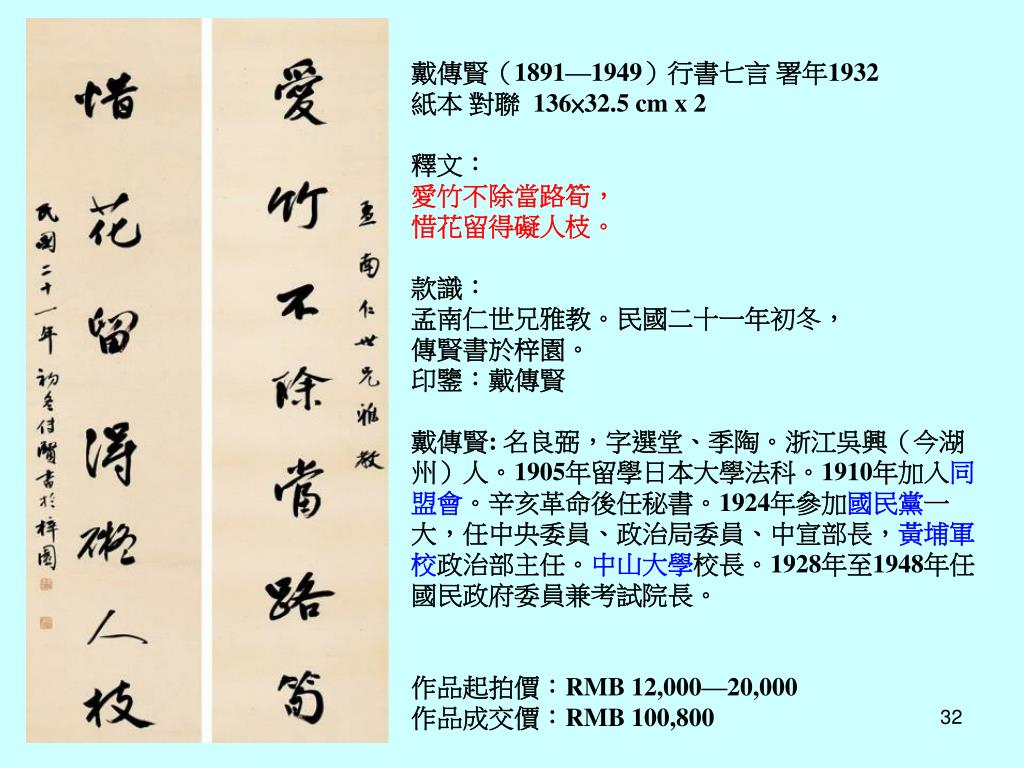 愛竹不除當路筍
孟南仁世兄雅教
惜花留得礙人枝
民國二十一年初冬傳賢書於梓園
戴傳賢（1891—1949）行書七言 署年1932
紙本 對聯 136×32.5 cm x 2
釋文：
愛竹不除當路筍，
惜花留得礙人枝。
款識：
孟南仁世兄雅教。民國二十一年初冬，
傳賢書於梓園。
印鑒：戴傳賢
戴傳賢: 名良弼，字選堂、季陶。浙江吳興（今湖
州）人。1905年留學日本大學法科。1910年加入同
盟會。辛亥革命後任秘書。1924年參加國民黨一
大，任中央委員、政治局委員、中宣部長，黃埔軍
校政治部主任。中山大學校長。1928年至1948年任
國民政府委員兼考試院長。
作品起拍價：RMB 12,000—20,000
作品成交價：RMB 100,800
32